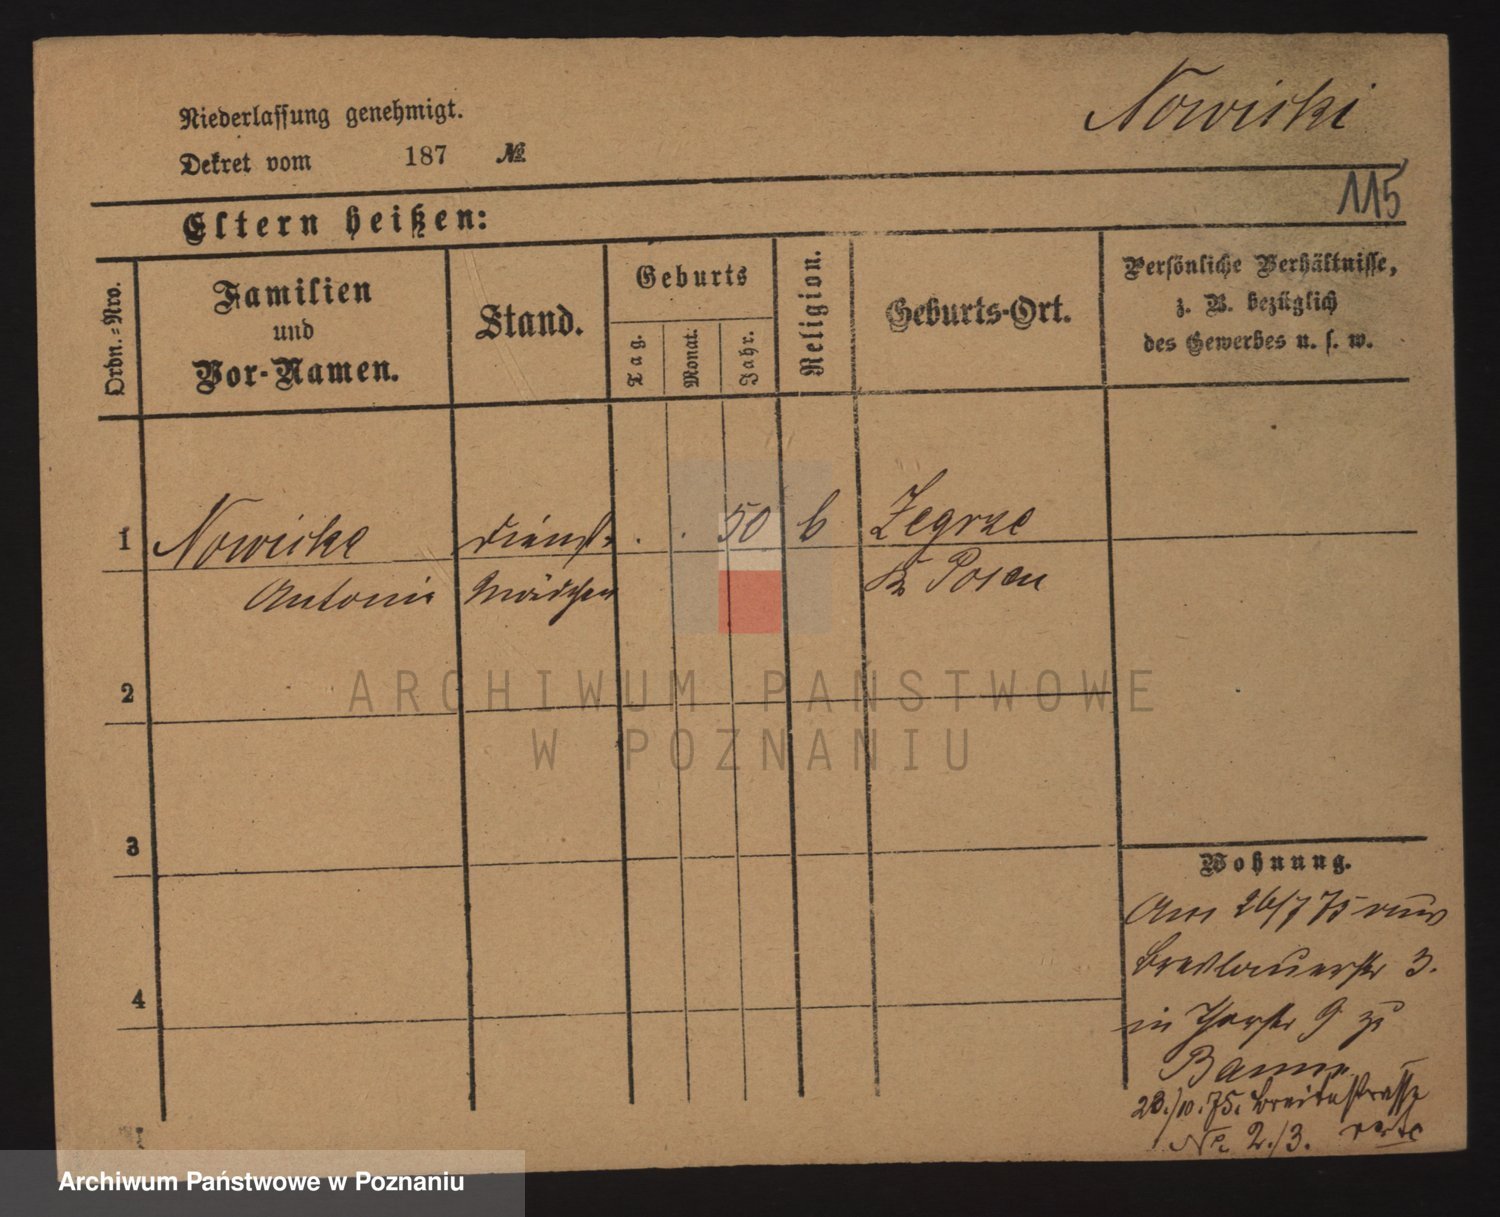 Nowicki
Niederlassung genehmigt.
Dekret vom 187 №
115
Eltern heißen:
Ordn.=Nro.
Familien
und
Vor-Namen.
Stand.
Geburts
Tag.
Monat.
Jahr.
Religion.
Geburts-Ort.
Persönliche Verhältnisse,
z. B. bezüglich
des Gewerbes u. s. w.
1 Nowicka Dienst- . . 50 k Zegrze
Antonie Mädchen Kr Posen
2
3
4
Wohnung.
Am 26/7 75 von
Breslauerstr 3.
in 9 zu
28./10. 75. Breitestrasse
Nr. 2./3. verte
ARCHIWUM PAŃSTWOWE
W POZNANIU
Archiwum Państwowe w Poznaniu